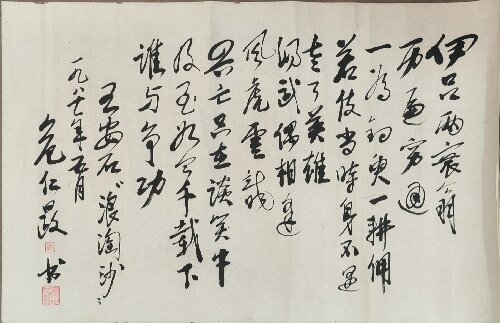 伊吕兩衰翁
历遍穷通
一為钓叟一耕佣
若使当时身不遇
老了英雄
汤武偶相逢
風虎雲龍
兴亡只在谈笑中
及至如今千载下
谁与争功
王安石“浪淘沙”
一九八七年五月
危仁晸书